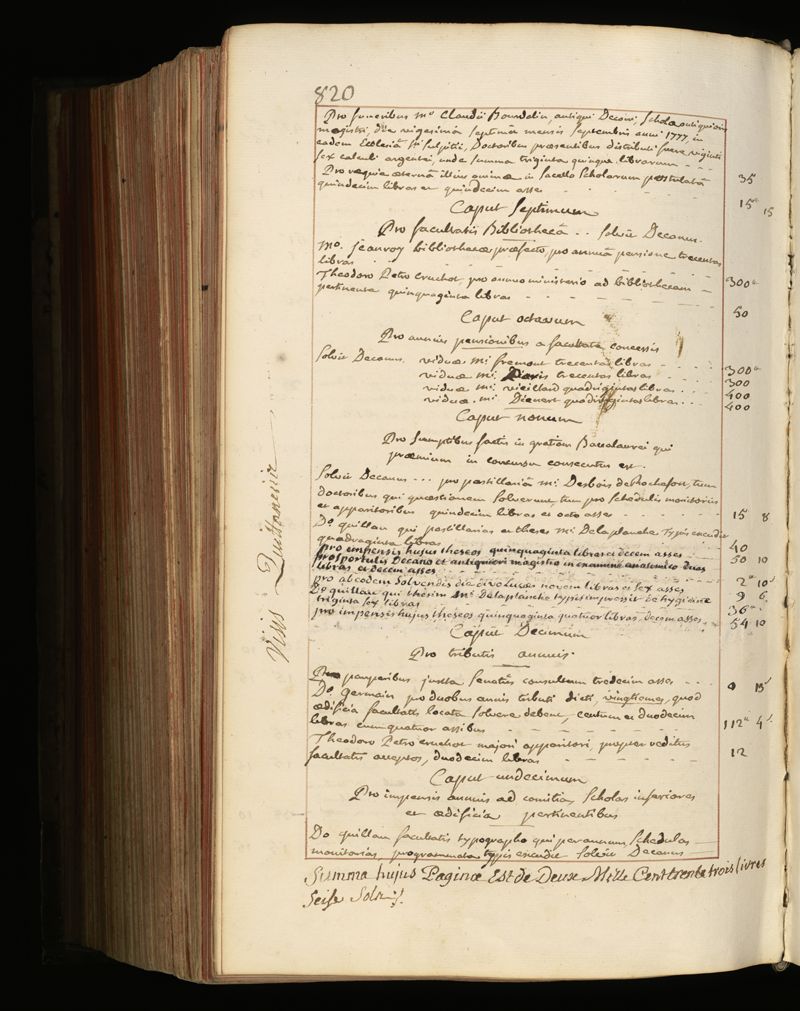 820
Pro funeribus mi Claudii Bourdelin, antiqui Decani, Scholæ antiquioris
magistri, die vigesimâ septimâ mensis septembris anni 1777, in
eadem Ecclesiâ Sti Sulpitii, Doctoribus præsentibus distributi fuere viginti
sex calculi argentei, unde summa triginta quinque librarum - - 35
Pro requie æternâ illius animæ in sacello Scholarum postulatâ
quindecim libras et quindecim asses - - - 15 15
Caput Septimum
Pro facultatis Bibliothecâ .. solvit Decanus.
Mo. Jeanroy bibliothecæ præfecto pro annuâ pensione trecentas
libras - - - 300
Theodoro Petro cruchot, pro annuo ministerio ad bibliothecam
pertinente quinquaginta libras - - - 50
Caput octavum
Pro annuis pensionibus a facultate concessis
Solvit Decanus. viduæ mi fremont trecentas libras - - - 300
viduæ mi: Davis trecentas libras - - - 300
viduæ mi: vieillard quadrigintas libras - - - 400
viduæ mi Dienert quadrigintas libras - - - 400
Caput nonum
Pro sumptibus factis in gratiam Baccalaurei qui
præmium in concursu consecutus est.
Solvit Decanus - - - pro pastillariâ mi Desbois de Rochefort, tum
doctoribus qui quæstionem solverunt, tum pro schedulis monitoriis
et apparitoribus quindecim libras et octo asses - - 15 8
Do quillau qui pastillarias et theses mi Delaplanche typis excudit
quadraginta libras - - - 40
pro impensis hujus theseos quinquaginta libras et decem asses - - 50 10
pro sportulis Decano et antiquiori magistro in examine anatomico duas
libras et decem asses - - - 2 10
pro ab eodem solvendis die divolutæ novem libras et sex asses 9 6
Do quillau qui thesim mi Delaplanche typis impressit de hygiene
triginta sex libras - - - 36
pro impensis hujus theseos quinquaginta quatuor libras, decem asses - 54 10
Caput Decimum
Pro tributis annuis.
Pro pauperibus juxta senatûs consultum tredecim asses - - 0 13
Do. Germain pro duobus annis tributi dicti, vingtiemes, quod
ædificia facultatis locata solvere debent, centum et duodecim
libras cum quatuor assibus - - - 112 4
Theodoro Petro cruchot majori apparitori, propter reditus
facultatis acceptos, duodecim libras - - - 12
Caput undecimum
Pro impensis annuis ad comitia, Scholas inferiores
et ædificia pertinentibus
Do quillau facultatis typographo qui per annum, schedulas
monitorias, programmata typis excudit solvit Decanus
Summa hujus Paginæ Est de Deux Mille Cent trente trois livres
Seise Sols